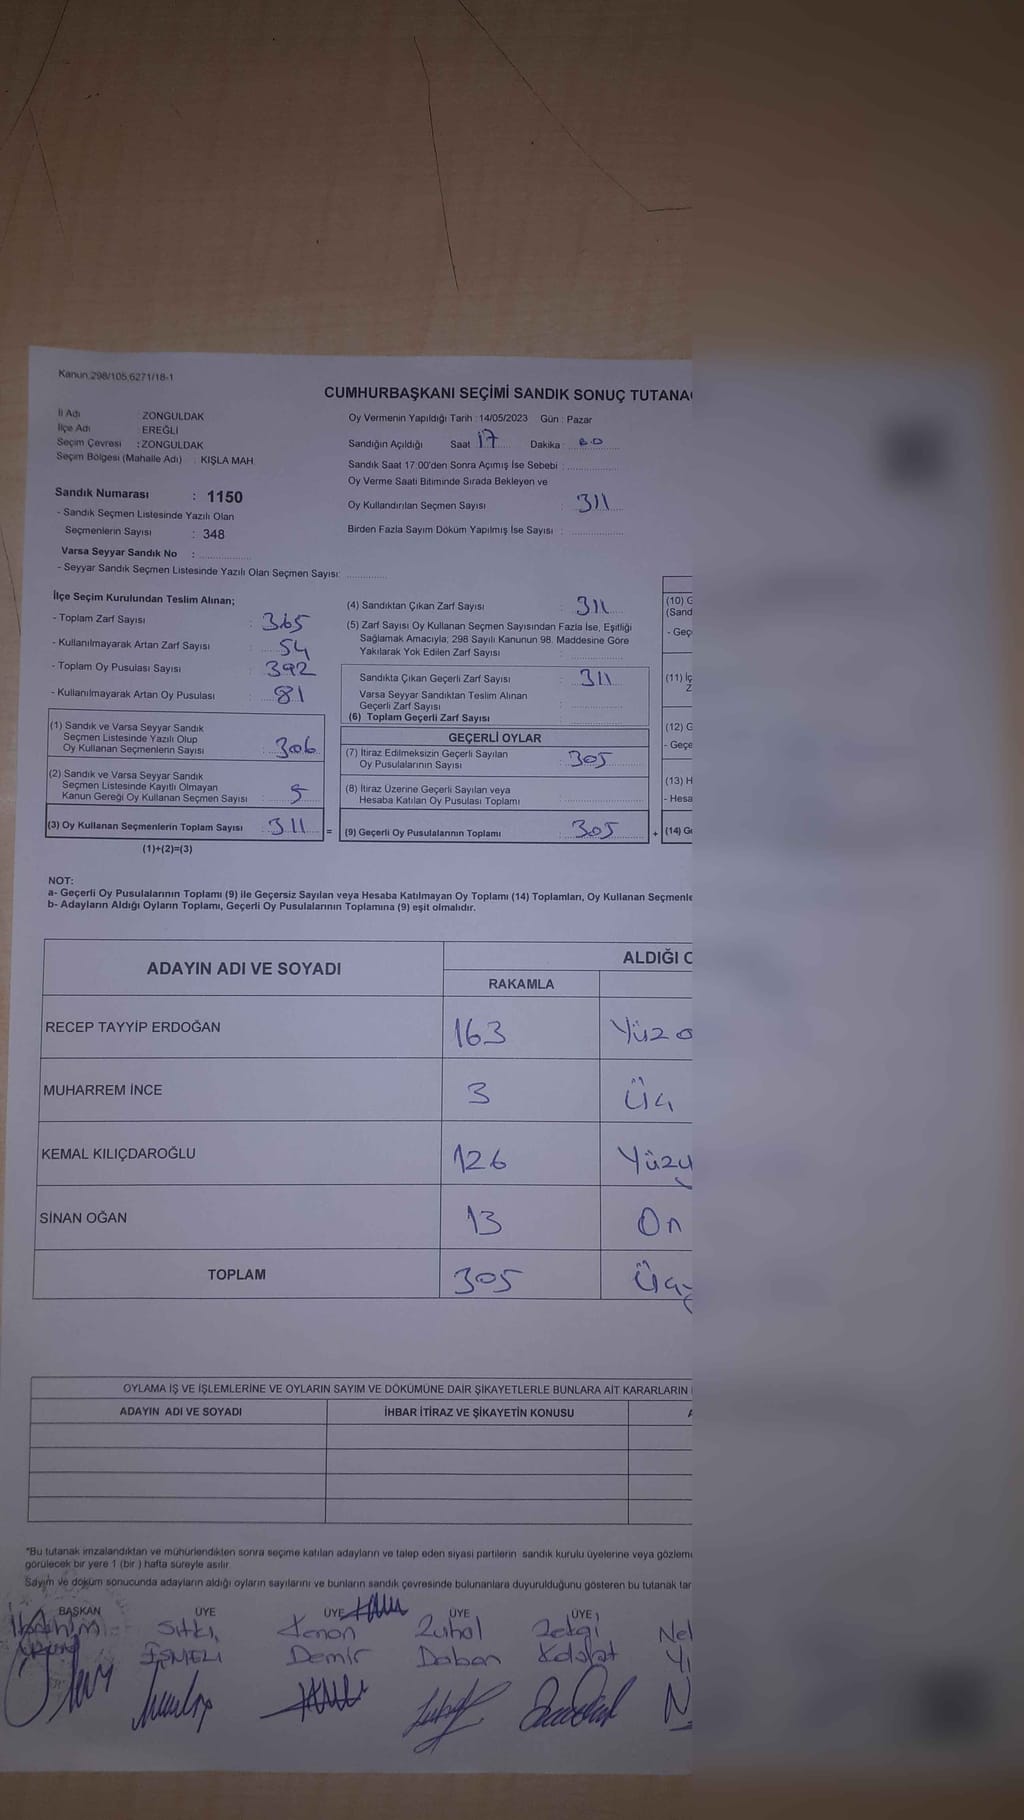 Kanun 298/105,6271/18-1
CUMHURBAŞKANI SEÇİMİ SANDIK SONUÇ TUTANA
İl Adı : ZONGULDAK
İlçe Adı : EREĞLİ
Seçim Çevresi : ZONGULDAK
Seçim Bölgesi (Mahalle Adı) : KIŞLA MAH.
Oy Vermenin Yapıldığı Tarih : 14/05/2023 Gün : Pazar
Sandığın Açıldığı Saat 17 Dakika :
Sandık Saat 17:00'den Sonra Açımış İse Sebebi :
Oy Verme Saati Bitiminde Sırada Bekleyen ve
Oy Kullandırılan Seçmen Sayısı : 311
Birden Fazla Sayım Döküm Yapılmış İse Sayısı :
Sandık Numarası : 1150
- Sandık Seçmen Listesinde Yazılı Olan
Seçmenlerin Sayısı : 348
Varsa Seyyar Sandık No :
- Seyyar Sandık Seçmen Listesinde Yazılı Olan Seçmen Sayısı:
İlçe Seçim Kurulundan Teslim Alınan;
- Toplam Zarf Sayısı : 365
- Kullanılmayarak Artan Zarf Sayısı : 54
- Toplam Oy Pusulası Sayısı : 392
- Kullanılmayarak Artan Oy Pusulası : 81
(1) Sandık ve Varsa Seyyar Sandık
Seçmen Listesinde Yazılı Olup
Oy Kullanan Seçmenlerin Sayısı : 306
(2) Sandık ve Varsa Seyyar Sandık
Seçmen Listesinde Kayıtlı Olmayan
Kanun Gereği Oy Kullanan Seçmen Sayısı : 5
(3) Oy Kullanan Seçmenlerin Toplam Sayısı : 311 =
(1)+(2)=(3)
(4) Sandıktan Çıkan Zarf Sayısı : 311
(5) Zarf Sayısı Oy Kullanan Seçmen Sayısından Fazla İse, Eşitliği
Sağlamak Amacıyla; 298 Sayılı Kanunun 98. Maddesine Göre
Yakılarak Yok Edilen Zarf Sayısı :
Sandıkta Çıkan Geçerli Zarf Sayısı : 311
Varsa Seyyar Sandıktan Teslim Alınan
Geçerli Zarf Sayısı :
(6) Toplam Geçerli Zarf Sayısı :
GEÇERLİ OYLAR
(7) İtiraz Edilmeksizin Geçerli Sayılan
Oy Pusulalarının Sayısı : 305
(8) İtiraz Üzerine Geçerli Sayılan veya
Hesaba Katılan Oy Pusulası Toplamı :
(9) Geçerli Oy Pusulalarının Toplamı : 305 +
(10) G
(Sand
- Geç
(11) İç
Z
(12) G
- Geçe
(13) H
- Hesa
(14) G
NOT:
a- Geçerli Oy Pusulalarının Toplamı (9) ile Geçersiz Sayılan veya Hesaba Katılmayan Oy Toplamı (14) Toplamları, Oy Kullanan Seçmenle
b- Adayların Aldığı Oyların Toplamı, Geçerli Oy Pusulalarının Toplamına (9) eşit olmalıdır.
ADAYIN ADI VE SOYADI ALDIĞI O
RAKAMLA
RECEP TAYYİP ERDOĞAN 163 Yüz
MUHARREM İNCE 3 Üç
KEMAL KILIÇDAROĞLU 126 Yüzy
SİNAN OĞAN 13 On
TOPLAM 305 Üçy
OYLAMA İŞ VE İŞLEMLERİNE VE OYLARIN SAYIM VE DÖKÜMÜNE DAİR ŞİKAYETLERLE BUNLARA AİT KARARLARIN
ADAYIN ADI VE SOYADI İHBAR İTİRAZ VE ŞİKAYETİN KONUSU
*Bu tutanak imzalandıktan ve mühürlendikten sonra seçime katılan adayların ve talep eden siyasi partilerin sandık kurulu üyelerine veya gözlem
görülecek bir yere 1 (bir ) hafta süreyle asılır.
Sayım ve döküm sonucunda adayların aldığı oyların sayılarını ve bunların sandık çevresinde bulunanlara duyurulduğunu gösteren bu tutanak tar
BAŞKAN ÜYE ÜYE ÜYE ÜYE
İbrahim Sıtkı Kenan Zuhal Zekai Nel
Demir Daban